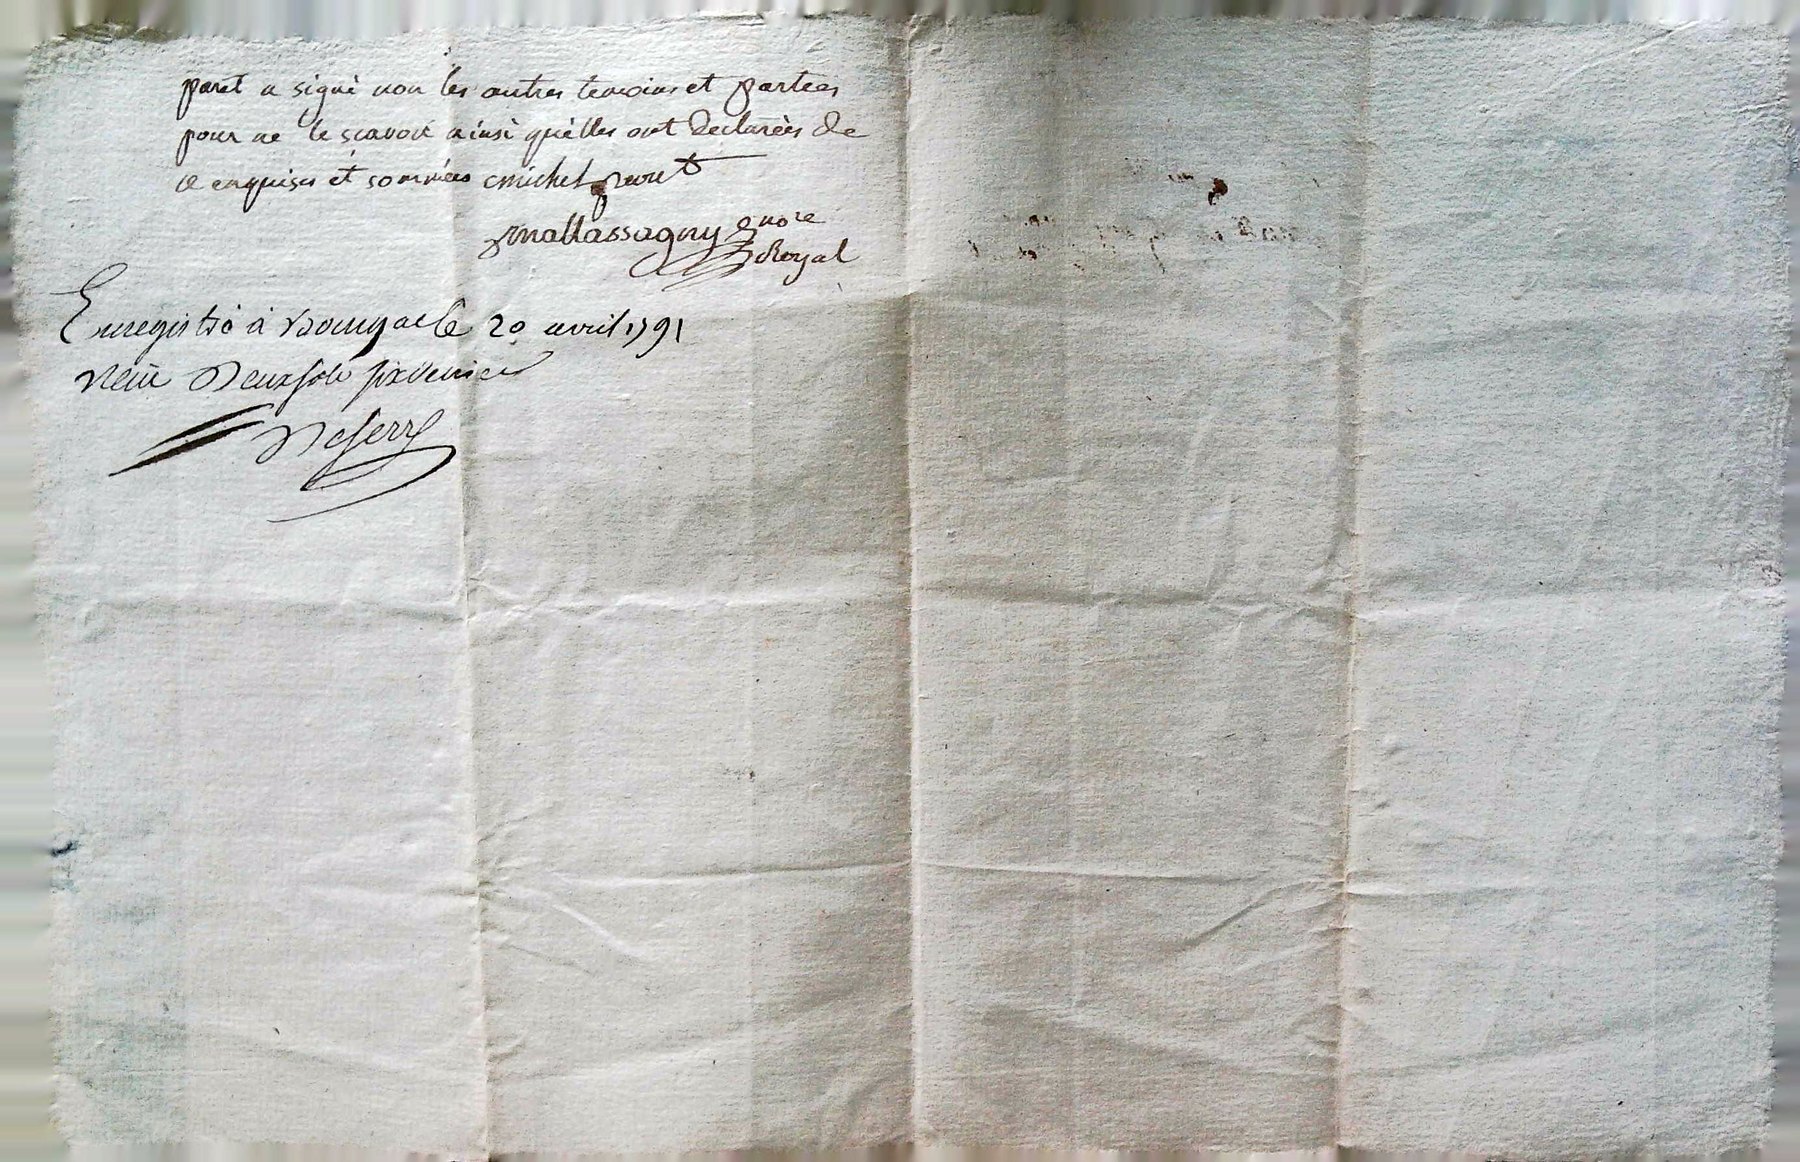 paret a signé non les autres temoins et parties
pour ne le scavoir ainsi quelles ont declarées de
ce enquises et sommées michel paret
mallassagny nore
Royal
Enregistré à le 20 avril 1791
Reçu Deux sols six deniers